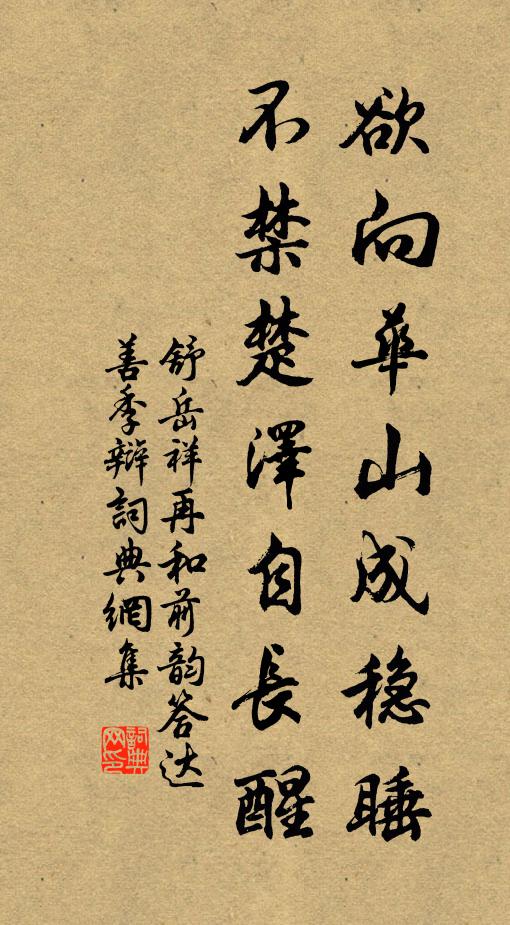 欲向華山成稳睡
不禁楚澤自長醒
舒岳祥再和前韵答达
善季辩詞典網集
詞典网印